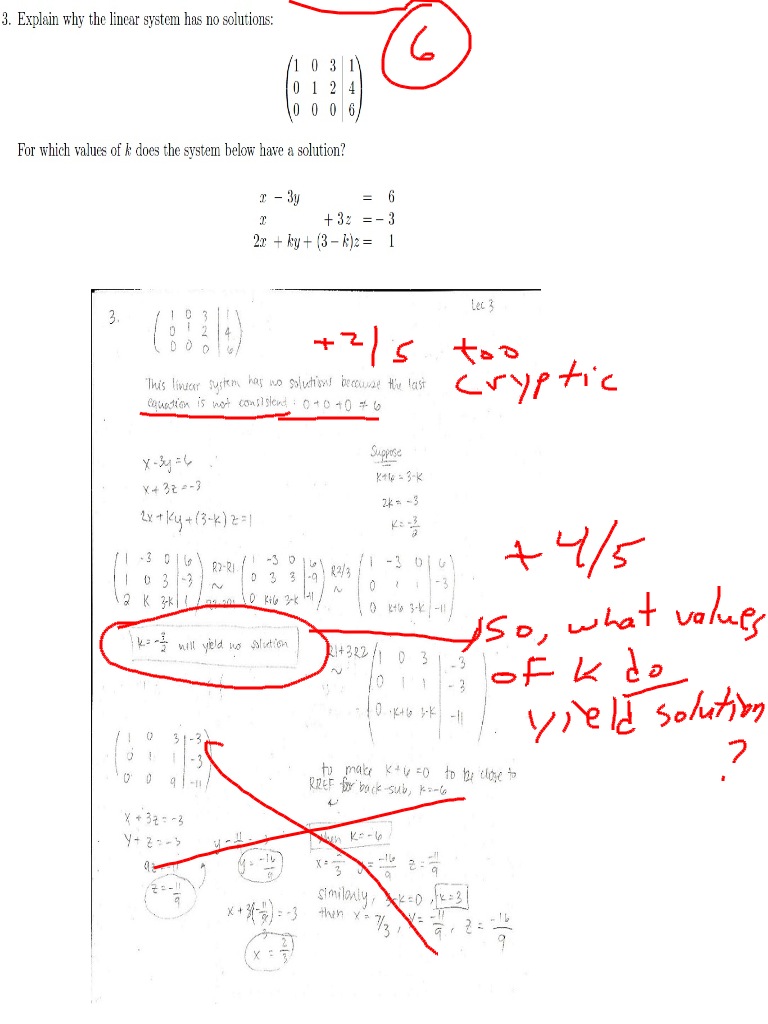 3. Explain why the linear system has no solutions:
6
1 0 3 | 1
0 1 2 | 4
0 0 0 | 6
For which values of k does the system below have a solution?
x − 3y = 6
x + 3z = − 3
2x + ky + (3 − k)z = 1
Lec 3
3.
1 0 3 | 1
0 1 2 | 4
0 0 0 | 6
+2/5 too
cryptic
This linear system has no solutions because the last
equation is not consistent : 0+0+0 ≠ 6
x-3y=6
x+3z=-3
2x+ky+(3-k)z=1
Suppose
k+6 = 3-k
2k = -3
k = -3/2
+4/5
1 -3 0 | 6
1 0 3 | -3
2 k 3-k | 1
R2-R1
~
1 -3 0 | 6
0 3 3 | -9
0 k+6 3-k | -11
R2/3
~
1 -3 0 | 6
0 1 1 | -3
0 k+6 3-k | -11
k = -3/2 will yield no solution
R1+3R2
~
1 0 3 | -3
0 1 1 | -3
0 k+6 3-k | -11
so, what values
of k do
yield solution
?
1 0 3 | -3
0 1 1 | -3
0 0 9 | -11
to make k+6=0 to be close to
RREF for back-sub, k=-6
x + 3z = -3
y + z = -3
z = -11/9
y = -16/9
x + 3(-11/9) = -3
x = 2/3
then k=-6
z = -11/9
similarly, k=3
then x = 7/3, z = -16/9